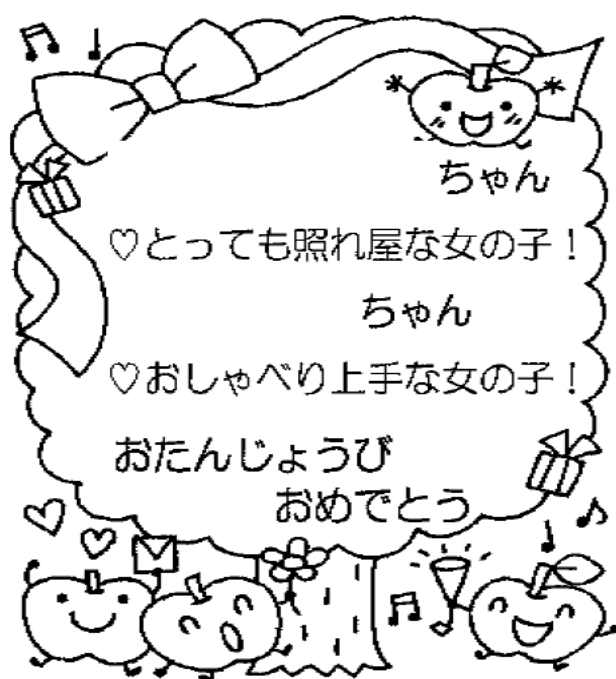 ちゃん
♡とっても照れ屋な女の子！
ちゃん
♡おしゃべり上手な女の子！
おたんじょうび
おめでとう